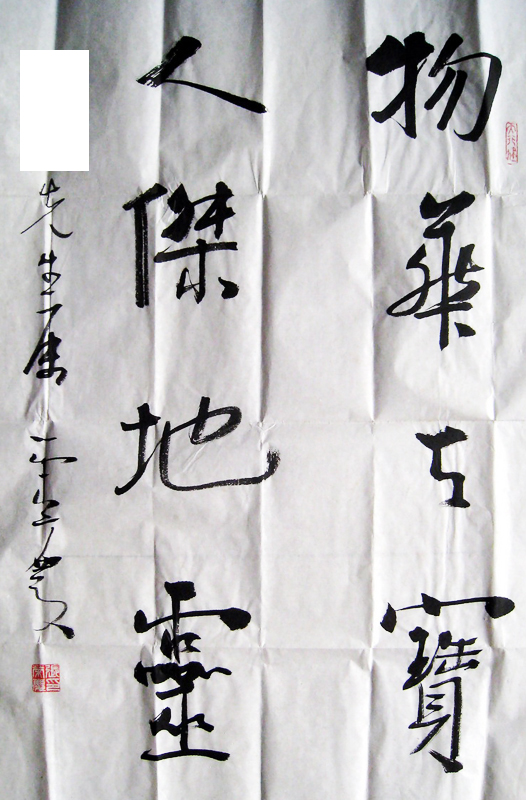 物華天寶
人傑地靈
先生屬